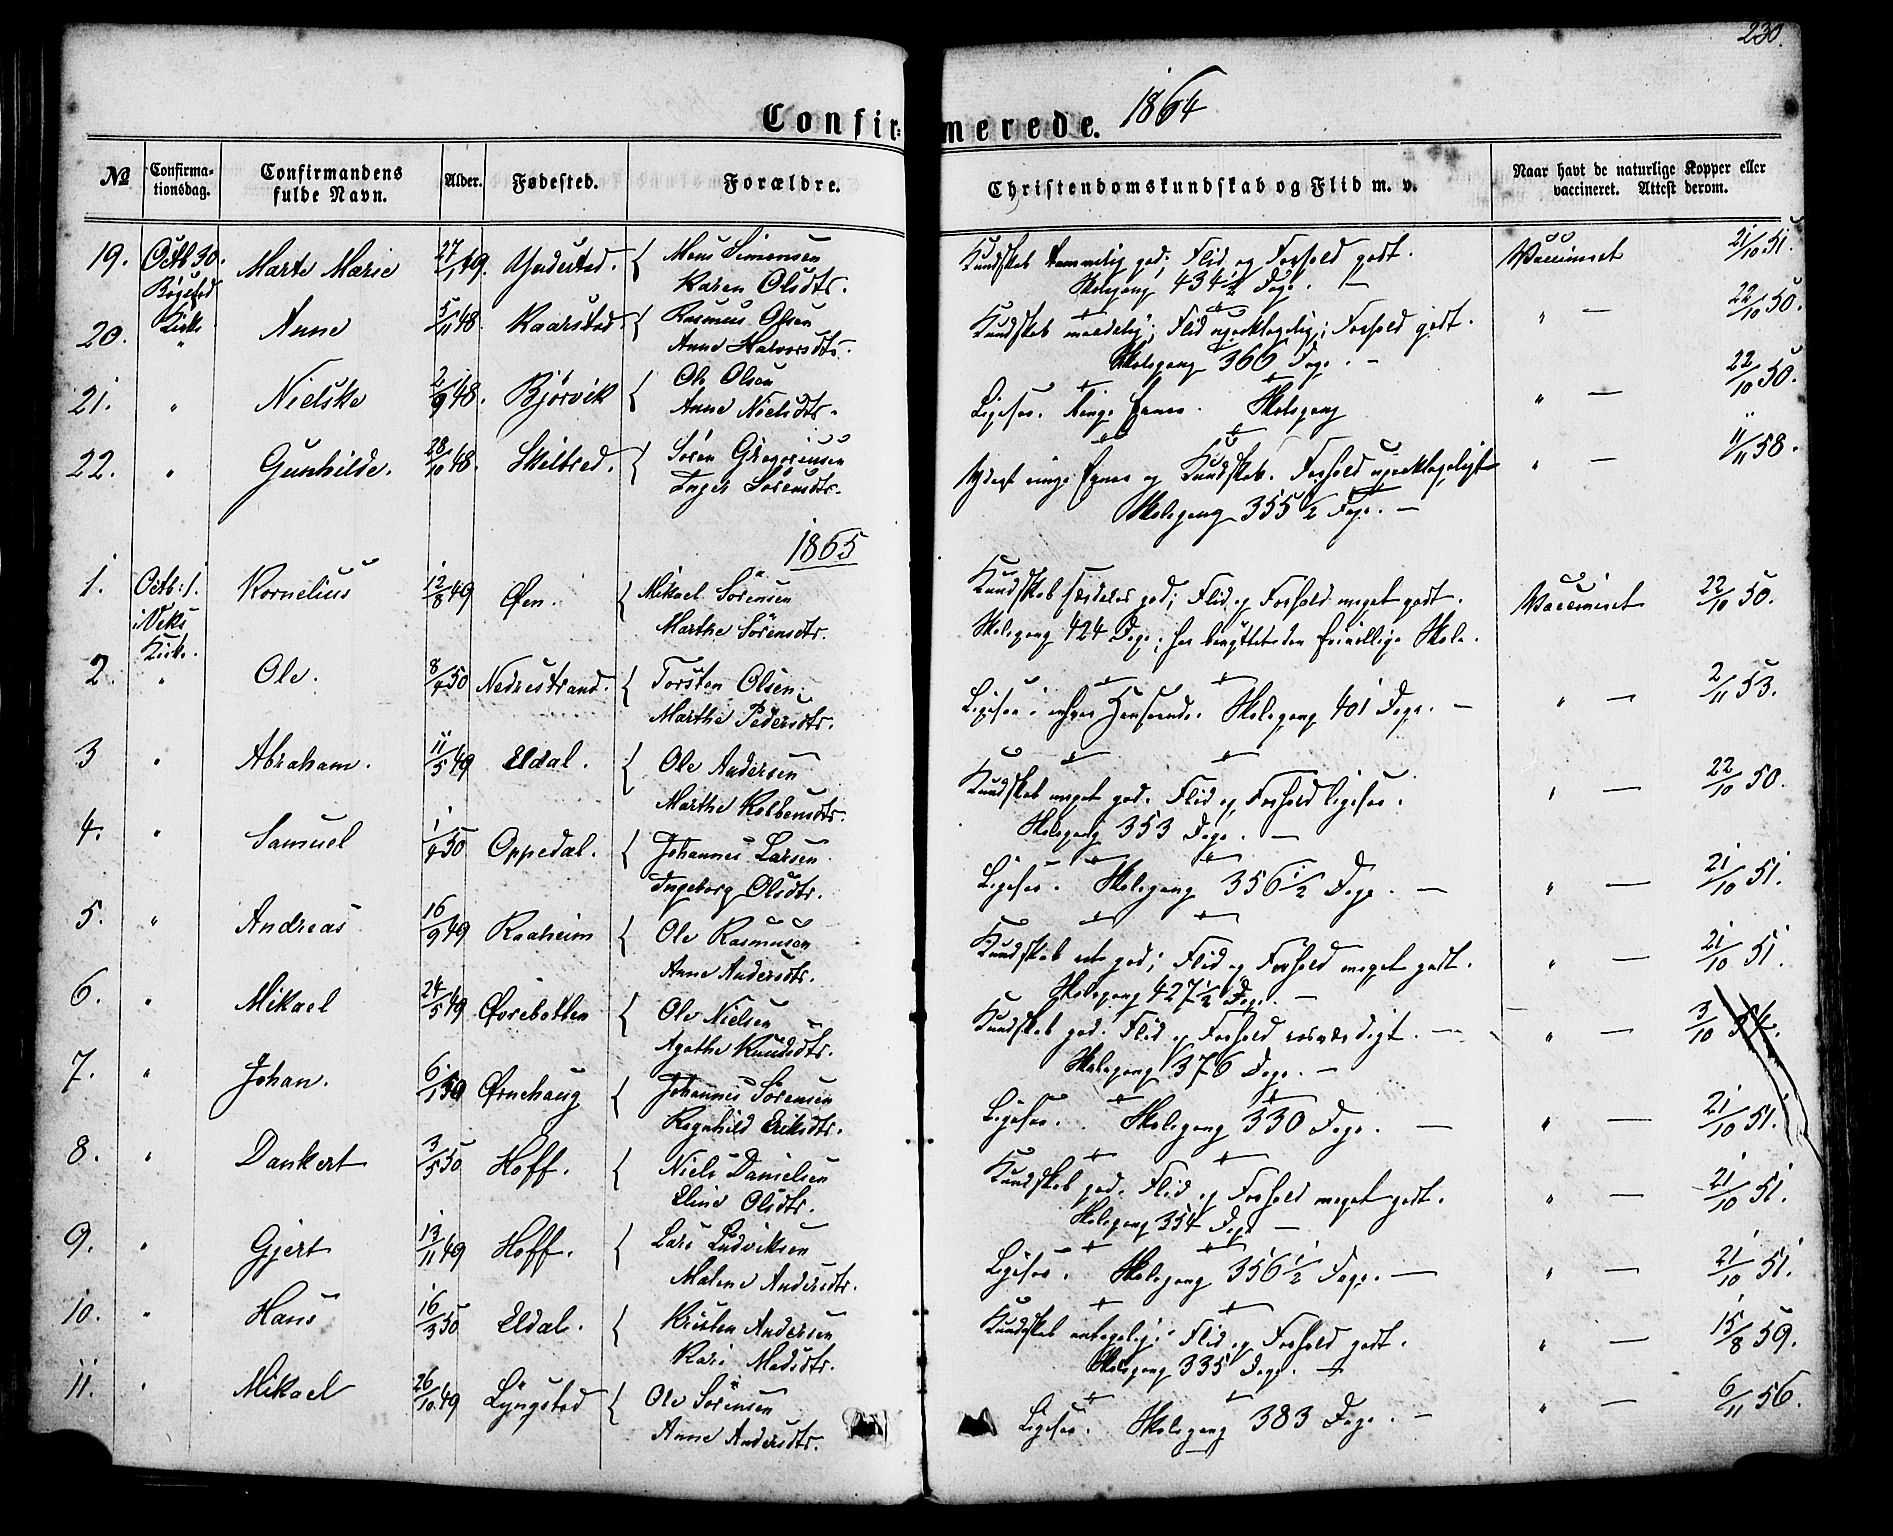 230.
Confirmerede. 1864
No Confirmationsdag. Confirmandens fulde Navn. Alder. Fødested. Forældre. Christendomskundskab og Flid m. v. Naar havt de naturlige Kopper eller vaccineret. Attest derom.
19. Octb 30. Marte Marie 27/1 49. Yndestad. { Mons Simonsen Kundskab temmelig god; Flid og Forhold godt. Vaccineret 21/10 51.
Kirke Karen Olsdtr. Skolegang 434 1/2 Dage. —
20. " Anne 5/11 48. Kaarstad. { Rasmus Olsen Kundskab maadelig; Flid upaaklagelig; Forhold godt. " — 22/10 50.
Anne Halvorsdtr. Skolegang 360 Dage. —
21. " Nielske 2/9 48. Bjørvik { Ole Olsen Ligesaa. Ringe Evner. Skolegang " — 22/10 50.
Anne Nielsdtr.
22. " Gunhilde. 28/10 48. Skilbred. { Søren Gregoriusen Yderst ringe Evner og Kundskab. Forhold upaaklageligt " — 11/11 58.
Inger Sørensdtr. Skolegang 355 1/2 Dage. —
1865
1. Octb: 1. Kornelius 12/8 49 Øen. { Mikael Sörensen Kundskab særdeles god; Flid og Forhold meget godt. Vaccineret 22/10 50.
i Veks Kirke. Marthe Sörensdtr. Skolegang 424 Dage; har benyttet den frivillige Skole.
2. " Ole. 8/4 50 Nedrestrand. { Torsten Olsen. Ligesaa i enhver Henseende. Skolegang 401 Dage. — " — 2/11 53.
Marthe Pedersdtr.
3 " Abraham. 11/5 49 Eldal. { Ole Andersen Kundskab meget god. Flid og Forhold ligesaa. " — 22/10 50.
Marthe Kolbensdtr. Skolegang 353 Dage. —
4. " Samuel 1/4 50 Oppedal. { Johannes Larsen Ligesaa. Skolegang 356 1/2 Dage. — " — 21/10 51.
Ingeborg Olsdtr.
5. " Andreas 16/9 49 Raaheim { Ole Rasmusen Kundskab ret god; Flid og Forhold meget godt. " — 21/10 51.
Anne Andersdtr. Skolegang 427 1/2 Dage. —
6. " Mikael 24/5 49 Øvrebotten { Ole Nielsen Kundskab god. Flid og Forhold rosværdigt. — " — 3/10 54.
Agathe Knudsdtr. Skolegang 376 Dage. —
7. " Johan. 6/1 50 Ørnehaug { Johannes Sörensen Ligesaa. Skolegang 330 Dage. — " — 21/10 51.
Ragnhild Eriksdtr.
8. " Dankert 3/5 50 Hoff. { Niels Danielsen Kundskab god. Flid og Forhold meget godt. " — 21/10 51.
Eline Olsdtr. Skolegang 354 Dage —
9. " Gjert 13/11 49 Hoff. { Lars Ludviksen Ligesaa. Skolegang 356 1/2 Dage. — " — 21/10 51.
Malene Andersdtr.
10. " Hans 16/3 50 Eldal. { Kristen Andersen Kundskab antagelig. Flid og Forhold godt. " — 15/8 59.
Kari Madsdtr. Skolegang 335 Dage. —
11. " Mikael 26/10 49 Lyngstad { Ole Sörensen Ligesaa. Skolegang 383 Dage. — " — 6/11 56.
Anne Andersdtr.